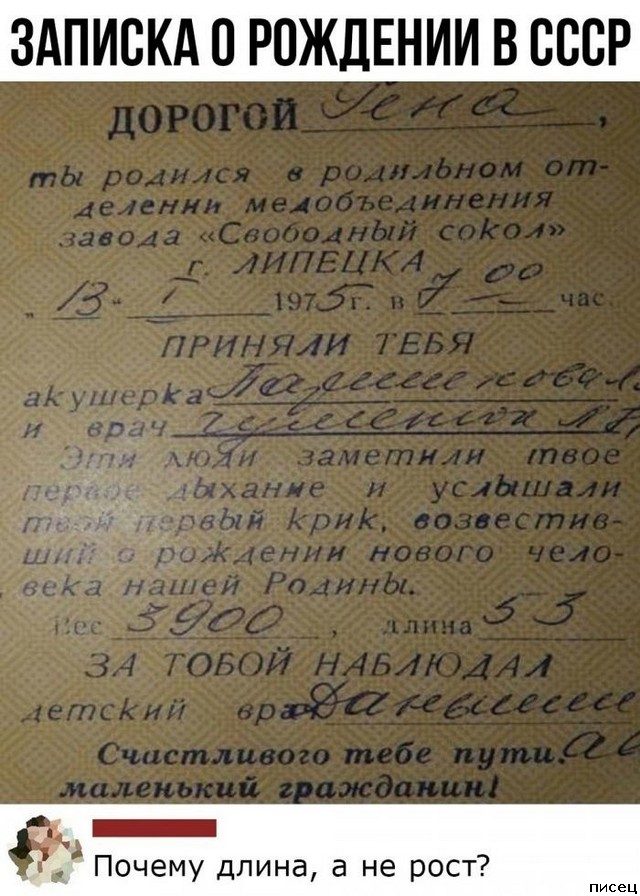 ЗАПИСКА О РОЖДЕНИИ В СССР
ДОРОГОЙ Гена,
ты родился в родильном от-
делении медобъединения
завода «Свободный сокол»
г. ЛИПЕЦКА
„ 13 “ I 1975г. в 7 00 час.
ПРИНЯЛИ ТЕБЯ
акушерка
и врач
Эти люди заметили твое
первое дыхание и услышали
твой первый крик, возвестив-
ший о рождении нового чело-
века нашей Родины.
Вес 3900, длина 53
ЗА ТОБОЙ НАБЛЮДАЛ
детский врач
Счастливого тебе пути,
маленький гражданин!
Почему длина, а не рост?
писец